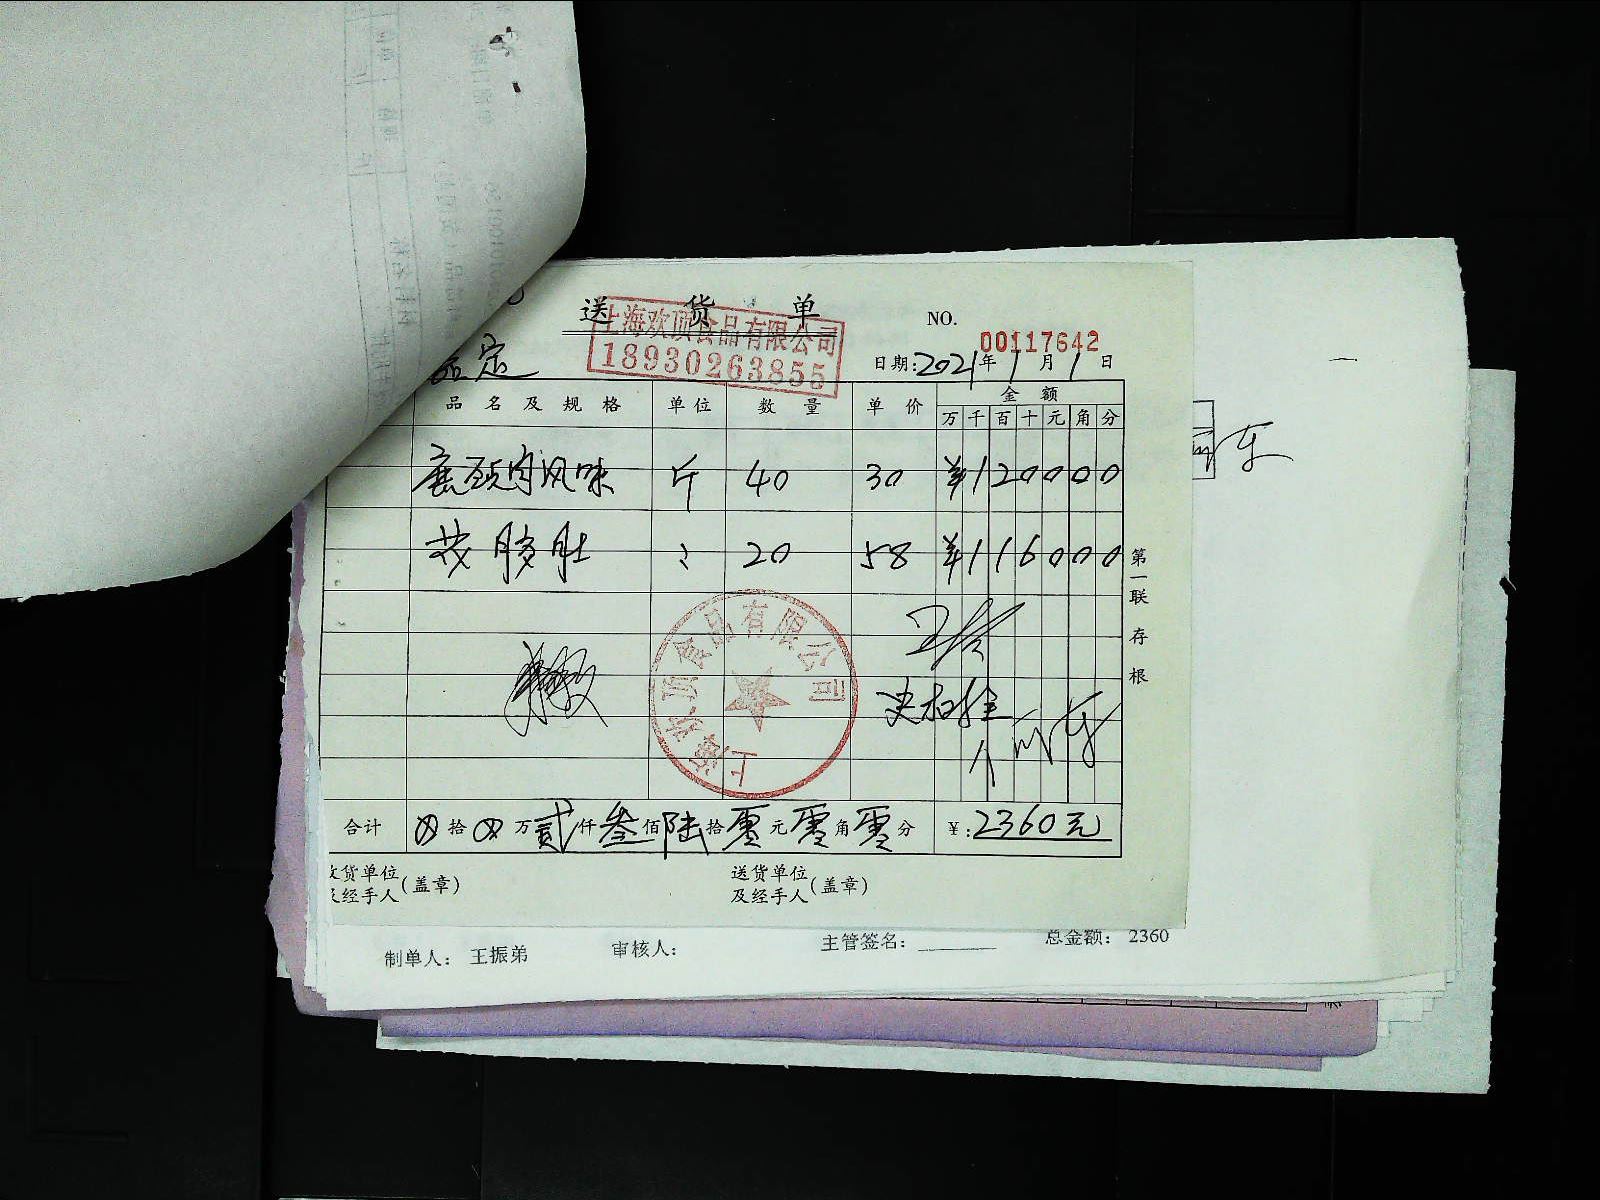 送 货 单
NO. 00117642
上海欢顶食品有限公司
18930263855
日期:2021年1月1日
定
品名及规格 单位 数量 单价 金额
万 千 百 十 元 角 分
肉风味 斤 40 30 ¥120000
肚 〃 20 58 ¥116000
上海欢顶食品有限公司
第一联 存根
合计 拾 万贰仟叁佰陆拾零元零角零分 ¥:2360元
收货单位及经手人(盖章) 送货单位及经手人(盖章)
制单人: 王振弟 审核人: 主管签名: 总金额: 2360